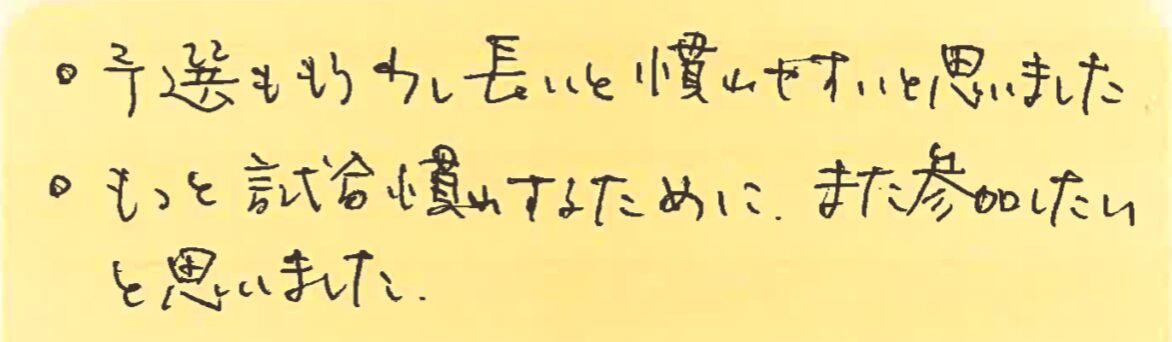 。予選ももう少し長いと慣れやすいと思いました
。もっと試合慣れするために、また参加したい
と思いました.